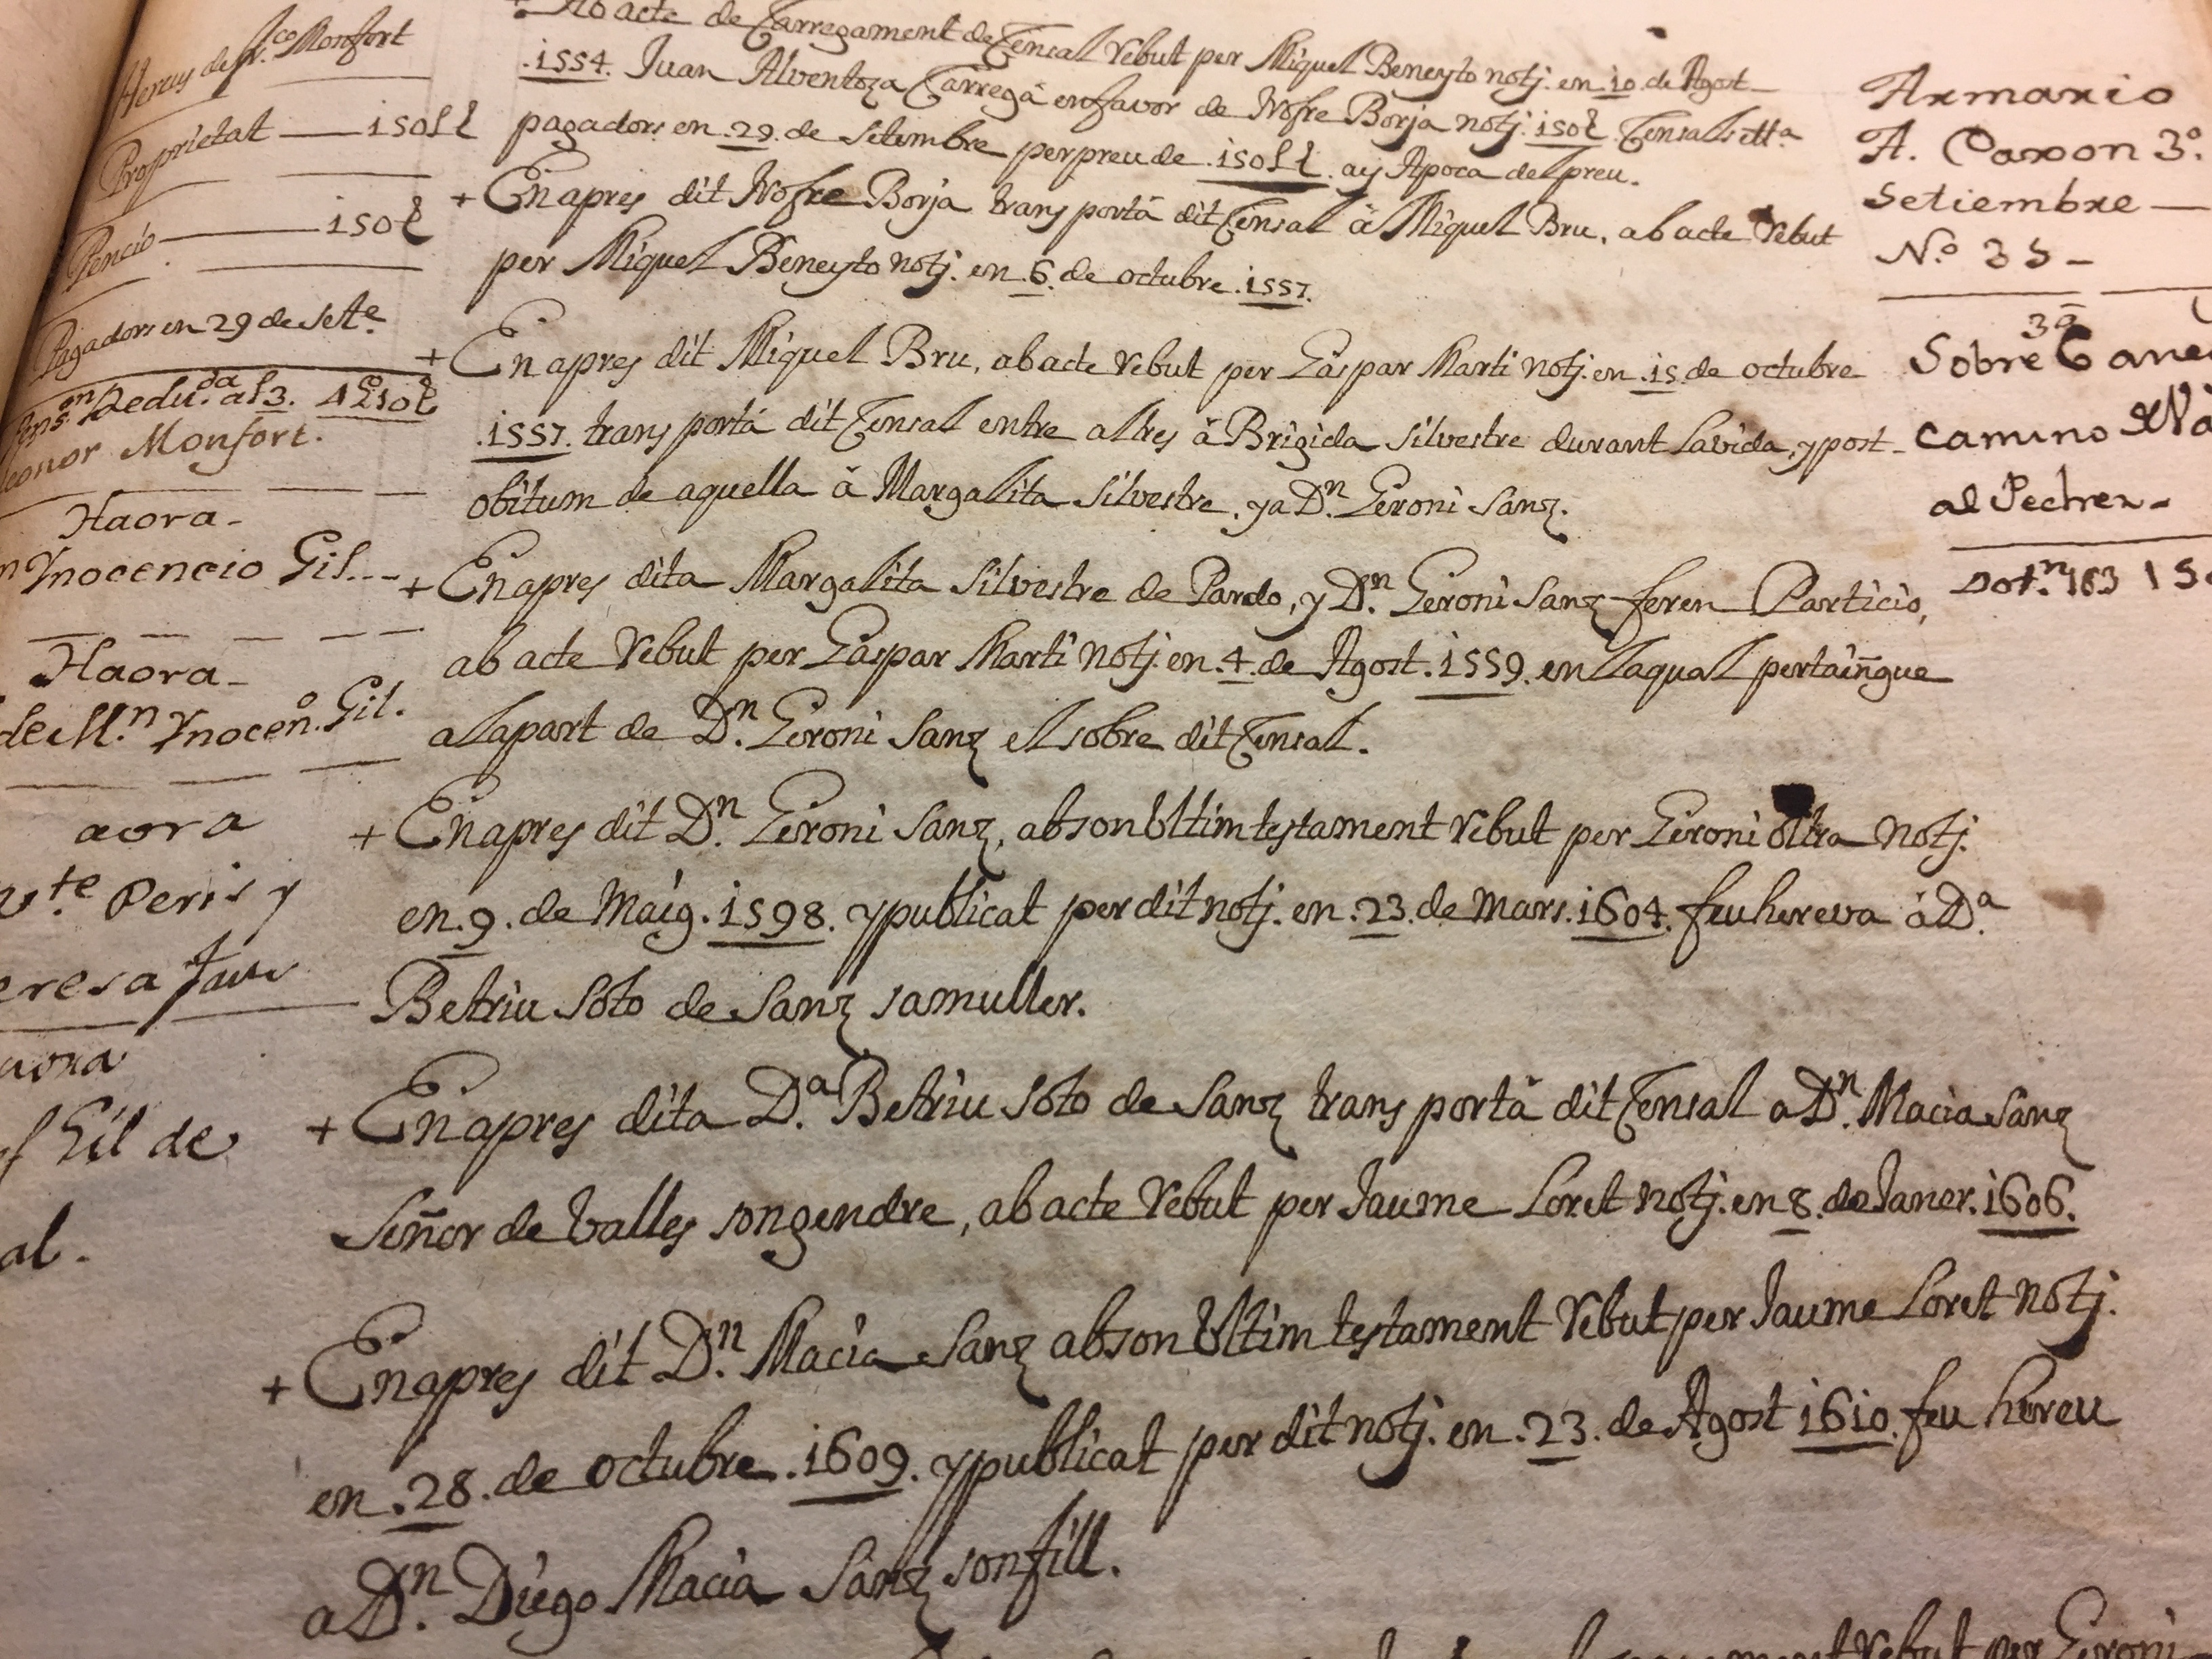 Hereus de fr.co Monfort
Proprietat — 150 ll
Pencio — 150 s
Pagadors en 29 de sete.
Pens.on Redu.da al 3. 4 ll 10 s
Monfort.
Haora-
Ynocencio Gil.--
Haora-
de M.n Ynocen.o Gil.
aora
Peris y
Gil de
al.
Ab acte de Carregament de Censal rebut per Miquel Beneyto notj. en .10. de Agost
.1554. Juan Alventoza Carregà en favor de Nofre Borja notj. 150 s Censals ett.a
pagadors en .29. de setembre per preu de .150 ll. ay Apoca del preu.
+ En apres dit Nofre Borja transportà dit Censal à Miquel Bru, ab acte rebut
per Miquel Beneyto notj. en .6. de octubre .1557.
+ En apres dit Miquel Bru, ab acte rebut per Gaspar Marti notj. en .15. de octubre
.1557. transportà dit Censal entre altres à Brigida Silvestre durant la vida, y post
obitum de aquella à Margalita Silvestre, y a D.n Geroni Sanz.
+ En apres dita Margalita Silvestre de Pardo, y D.n Geroni Sanz feren Particio,
ab acte rebut per Gaspar Marti notj. en .4. de Agost .1559. en la qual pertaiñgue
a la part de D.n Geroni Sanz el sobre dit Censal.
+ En apres dit D.n Geroni Sanz, ab son Ultim testament rebut per Geroni Oltra notj.
en .9. de Maig .1598. y publicat per dit notj. en .23. de Mars .1604. feu hereva à D.a
Betriu Soto de Sanz sa muller.
+ En apres dita D.a Betriu Soto de Sanz transportà dit Censal a D.n Macia Sanz
Señor de Valles son gendre, ab acte rebut per Jaume Loret notj. en 8. de Janer .1606.
+ En apres dit D.n Macia Sanz ab son Ultim testament rebut per Jaume Loret notj.
en .28. de octubre .1609. y publicat per dit notj. en .23. de Agost 1610. feu hereu
a D.n Diego Macia Sanz son fill.
rebut per Geroni
Armario
A. Caxon 3.o
Setiembre —
N.o 35 -
3a
Sobre
camino
al
Dot.n 183